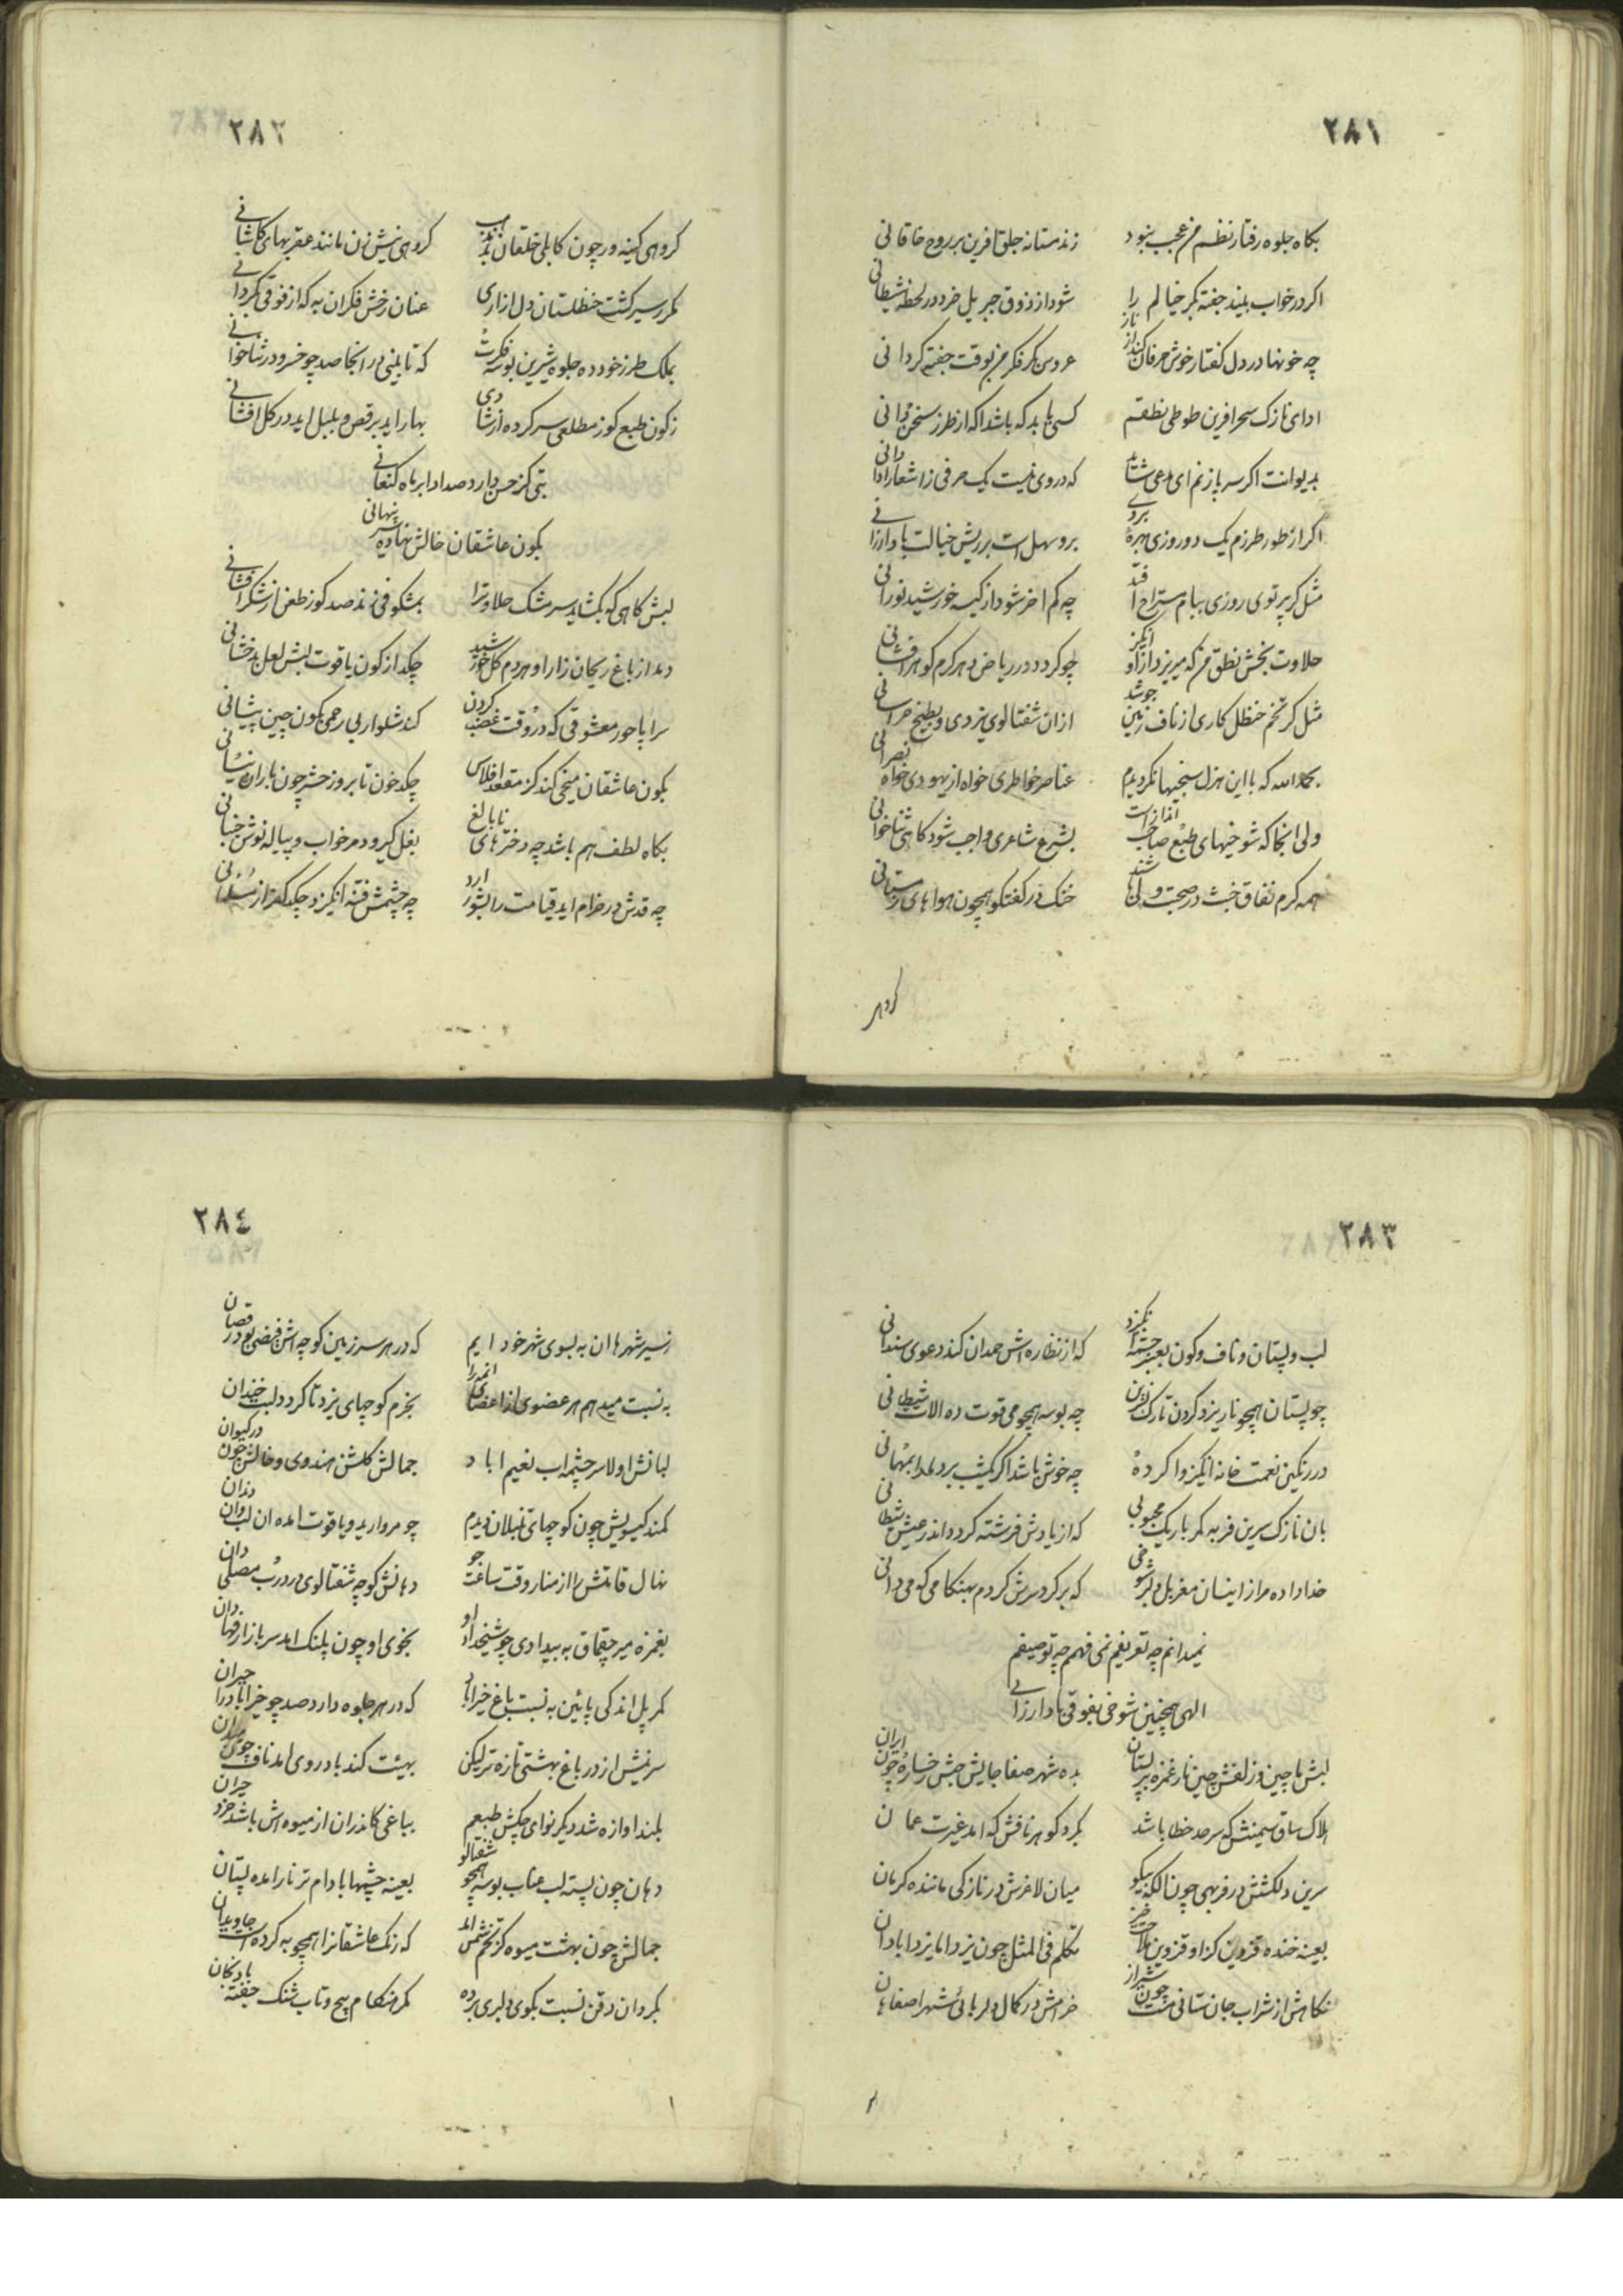 ٢٨١
بکاه جلوه رفتار نظم من عجب نبود زند مستانه جلق افرین بر روح خاقانی
اکر در خواب بیند جفته بکر خیالم را شود از ذوق جبریل خرد در لحظه شیطانی
چه خونها در دل کفتار خوش حرفان کند از ناز عروس بکر فکر من بوقت جفته کردانی
ادای نازک سحر افرین طوطی نطقم کسی باید که باشد اکه از طرز سخن دانی
بدیوانت اکر سر باز نم ای مدعی شاید که در وی نیست یک حرفی ز اشعار ادا دانی
اکر از طور طرزم یک دو روزی بهره بردی برو سهل است بر ریش خیالت باد ارزانی
مثل کر پرتوی روزی ببام مستراح افتد چه کم اخر شود از کیسه خورشید نورانی
حلاوت بخش نطق من که میریزد از او چو کردد در ریاض دهر کرم کوهر افشانی
مثل کر تخم حنظل کاری از ناف زمین جوشد ازان شفتالوی یزدی و بطیخ خراسانی
بحمد الله که با این هزل سنجیها نکردیدم عناصر خواطری خواه از یهودی خواه نصرانی
ولی انجا که شوخیهای طبع صاحب انداز است بشرع شاعری واجب شود کاهی ثنا خوانی
همه کرم نفاق خبث در صحبت ولی خنک در کفتکو همچون هوا های زمستانی
کروهی
٢٨٢
کروهی کینه ور چون کابلی خلقان کروهی نیش زن مانند عقربهای کاشانی
مکرر سیر کشت حنظلستان دل ازاری عنان رخش فکر ان به که از فوقی بکردانی
بملک طرز خود ده جلوه شیرین بوسه فکرت که تا بینی در انجا صد چو خسرو در ثنا خوانی
ز کون طبع کوز مطلعی سر کرده از شادی بهار اید برقص و بلبل اید در کل افشانی
بتی کز حسن دارد صد ادا بر ماه کنعانی
بکون عاشقان خالش نهاده سر پنهانی
لبش کاهی که بکشاید سر مشک حلاوترا بمشکوفی زند صد کوز طعن از شکر افشانی
دمد از باغ ریحان زار او هر دم کل خورشید چکد از کون یاقوت لبش لعل بدخشانی
سراپا حور معشوقی که در وقت غضب کردن کند شلوار بی رحمی بکون چین پیشانی
بکون عاشقان میخی کند کز مقعد افلاس چکد خون تا بروز حشر چون باران نیسانی
بکاه لطف هم باشد چه دخترهای نا بالغ بغل کیر و دمر خواب و پیاله نوش
چه قدش در خرام اید قیامت را بشور ارد چه چشمش فتنه انکیزد چکد کفر از مسلمانی
٢٨٣
لب و پستان و ناف و کون که از نظاره اش حمدان کند دعوی سندانی
چو پستان همچو نار یزد کردن نازک چه بوسه همچو می قوت ده الات شیطانی
در رنکین نعمت خانه انکیز وا کرده چه خوش باشد اکر یکشب برد ما را بمهمانی
بان نازک سرین فربه کمر باریک محبوبی که از یادش فرشته کردد اندر عیش شیطانی
خدا داده مرا زاینسان مغز بل دلبر شوخی که بر کرد سرش کردم بهنکامی که می دانی
نمیدانم چه تعریفم نمی فهمم چه توصیفم
الهی همچنین شوخی بفوقی باد ارزانی
لبش ماچین و زلفش چین تار غمزه بده شهر صفا جایش حبش رخساره چون ایران
هلاک ساق سیمینش که سرحد خطا باشد بکرد کوهر نافش که امد غیرت عمان
سرین دلکشش در فربهی چون لکنه نیکو میان لاغرش در نازکی ماننده کرمان
بعینه خنده قزوین کز او قزوین تکلم فی المثل چون یزد اما یزد ابادان
نکاهش از شراب جان ستانی مست چون شیراز خرامش در کمال دلربائی شهر اصفاهان
٢٨٤
ز سیر شهرها ان به بسوی شهر خود ایم که در هر سر زمین کوچه اش
به نسبت میدهم هر عضوی از اعضای بخرم کوچهای یزد تا کردد لبت خندان
لبانش اولا سر چشمه اب نعیم اباد جمالش کلشن هندوی و خالش چون
کمند کیسویش چون کوچهای نیلان دیدم چو مروارید و یاقوت امده ان لب و ان دندان
نهال قامتش را از منار وقت ساعت جو دهانش کوچه شفتالوی در درب مصلی دان
بغمزه میر چقماق به بیدادی چو بخوی او چون پلنک امد سر بازار
کمر پل اندکی پائین به نسبت باغ خیرابادی که در هر جلوه دارد صد چو خیراباد را حیران
سرینش از در باغ بهشتی تازه تر لیکن بهیئت کند باد روی امد ناف
بلند اوازه شد دیکر نوای چکش طبعم بباغی کاندران از میوه اش باشد خرد حیران
دهان چون پسته لب عناب بوسه همچو شفتالو بعینه چشمها بادام تر نار امده پستان
جمالش چون بهشت میوه کز تخم که رنک عاشقانرا همچو به کرده است جاویدان
بکردان ذقن نسبت بکوی دلبری برده کمر هنکام پیچ و تاب شنک جفته